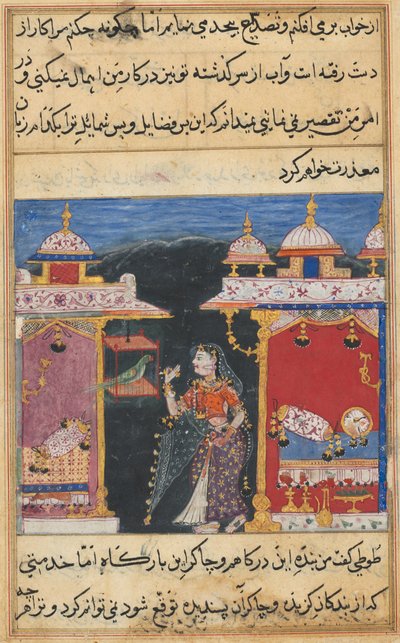 از خواب برمی افکنم و تصدیع بیحد می نمایم امّا چکونه چکنم مرا کار از
دست رفته است و آب از سر کذشته تو نیز در کار من اهمال نمیکنی و در
امر من تقصیر نمی نمائی نمیدانم که این بس فضایل و بس شمایل ترا بکدام زبان
معذرت خواهم کرد
طوطی کفت من بنده این درکاهم و چاکر این بارکاه امّا خدمتی
که از بندکان کزین و چاکران پسندیده توقع شود نمی توانم کرد و ترا هر چه